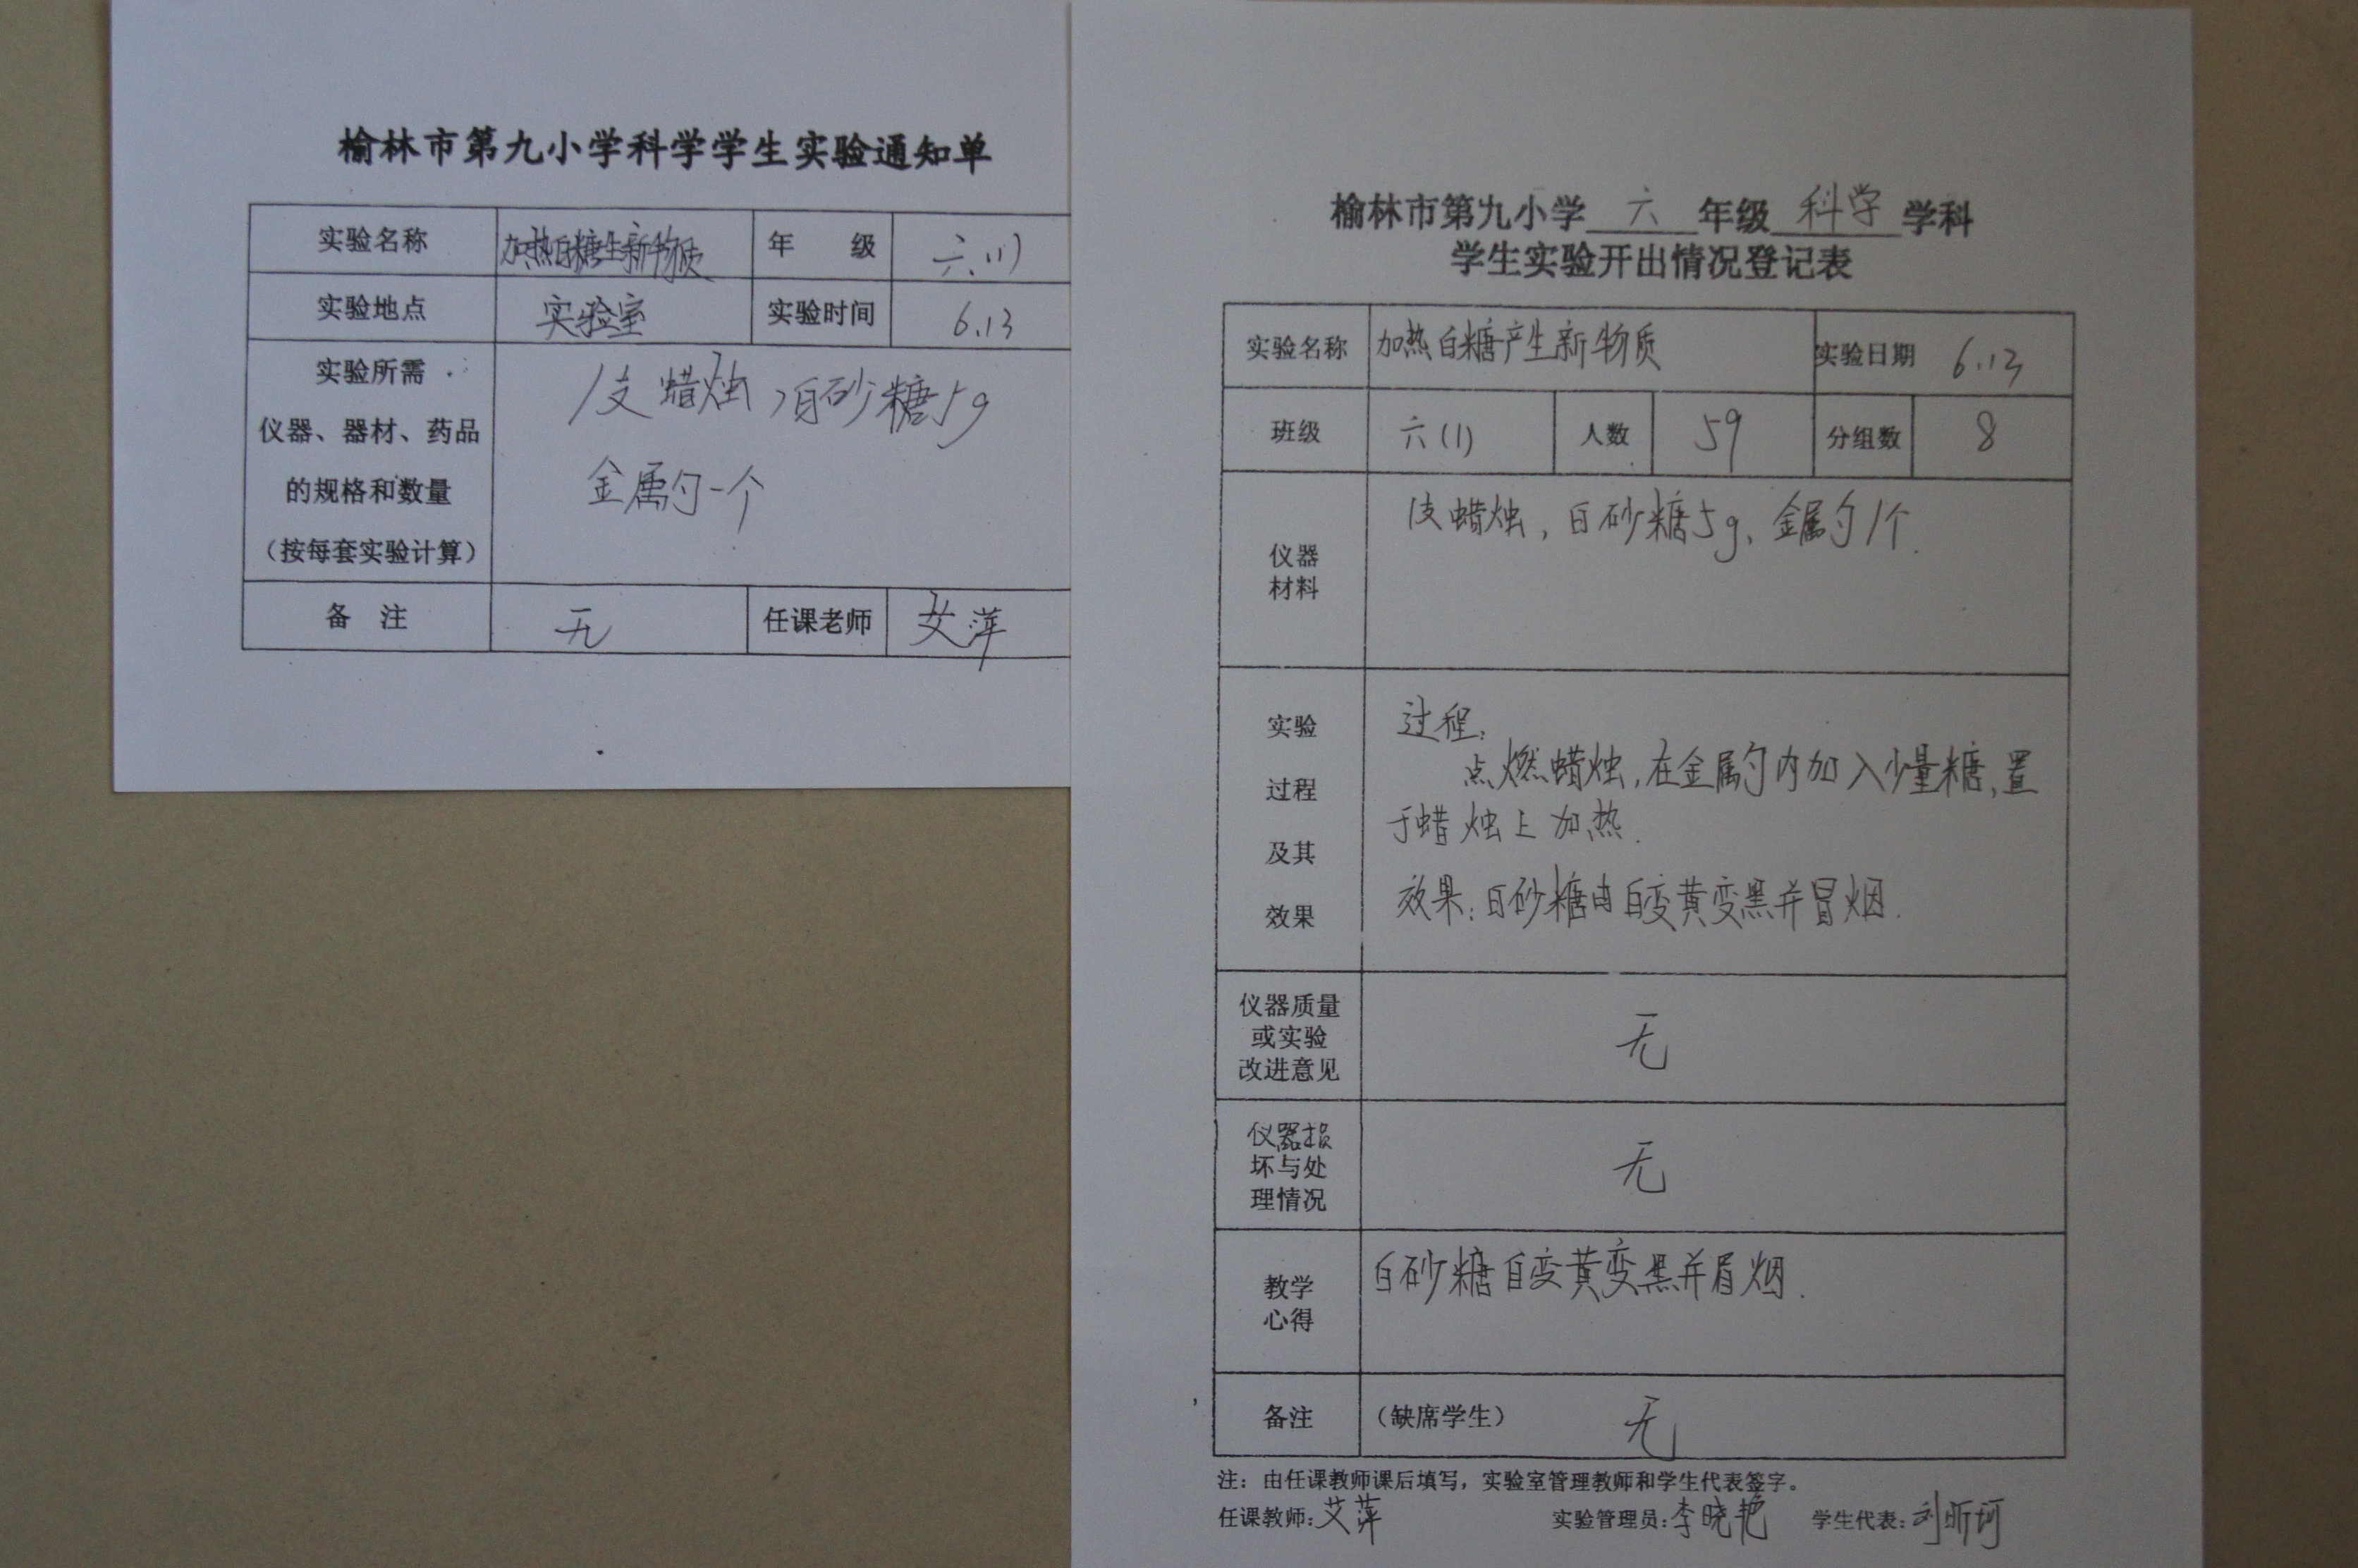 榆林市第九小学科学学生实验通知单
实验名称 加热白糖生新物质 年 级 六(1)
实验地点 实验室 实验时间 6.13
实验所需
仪器、器材、药品
的规格和数量
（按每套实验计算）
1支蜡烛，白砂糖5g
金属勺一个
备 注 无 任课老师 艾萍
榆林市第九小学 六 年级 科学 学科
学生实验开出情况登记表
实验名称 加热白糖产生新物质 实验日期 6.13
班级 六(1) 人数 59 分组数 8
仪器
材料
1支蜡烛，白砂糖5g、金属勺1个.
实验
过程
及其
效果
过程：
点燃蜡烛，在金属勺内加入少量糖，置
于蜡烛上加热.
效果：白砂糖由白变黄变黑并冒烟.
仪器质量
或实验
改进意见
无
仪器损
坏与处
理情况
无
教学
心得
白砂糖白变黄变黑并冒烟.
备注 （缺席学生） 无
注：由任课教师课后填写，实验室管理教师和学生代表签字。
任课教师：艾萍 实验管理员：李晓艳 学生代表：刘昕珂